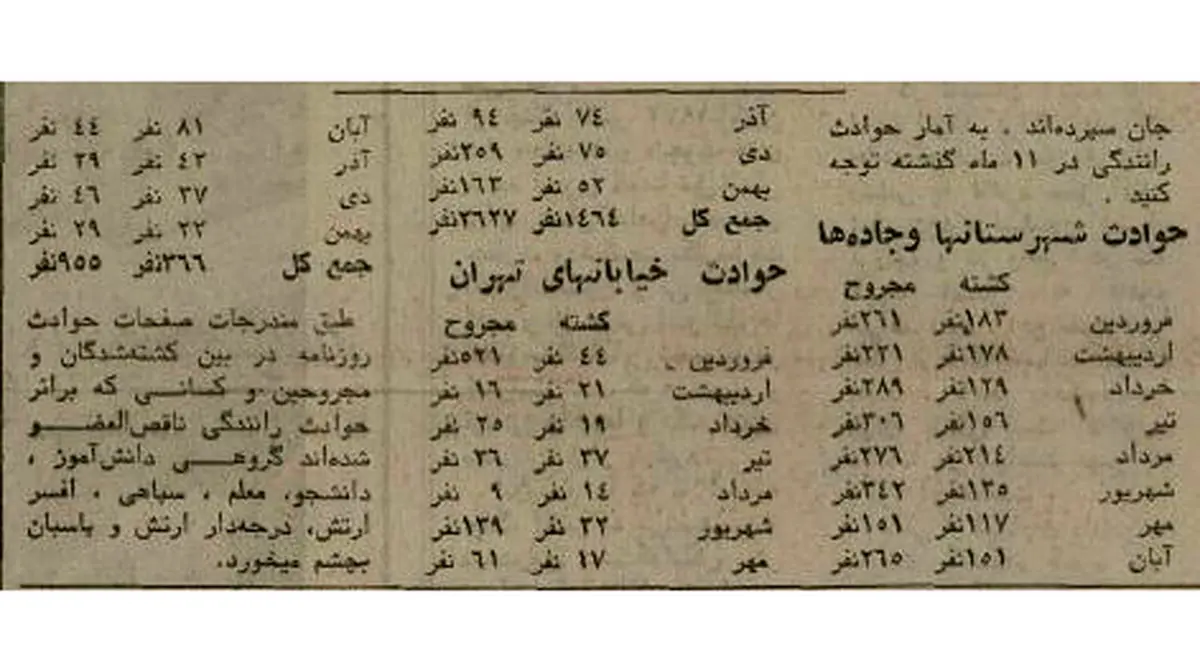 جان سپرده‌اند . به آمار حوادث
رانندگی در ۱۱ ماه گذشته توجه
کنید .
حوادث شهرستانها وجاده‌ها
کشته مجروح
فروردین ۱۸۳نفر ۲۶۱نفر
اردیبهشت ۱۷۸نفر ۲۲۱نفر
خرداد ۱۲۹نفر ۲۸۹نفر
تیر ۱۵۶نفر ۳۰۶نفر
مرداد ۲۱۴نفر ۲۷۶نفر
شهریور ۱۳۵نفر ۳۴۲نفر
مهر ۱۱۷نفر ۱۵۱نفر
آبان ۱۵۱نفر ۲۶۵نفر
آذر ۷۴ نفر ۹۴ نفر
دی ۷۵ نفر ۲۵۹نفر
بهمن ۵۲ نفر ۱۶۳نفر
جمع کل ۱۴۶۴نفر ۲۶۲۷نفر
حوادث خیابانهای تهران
کشته مجروح
فروردین ۴۴ نفر ۵۲۱نفر
اردیبهشت ۲۱ نفر ۱۶ نفر
خرداد ۱۹ نفر ۲۵ نفر
تیر ۳۷ نفر ۳۶ نفر
مرداد ۱۴ نفر ۹ نفر
شهریور ۳۲ نفر ۱۳۹نفر
مهر ۱۷ نفر ۶۱ نفر
آبان ۸۱ نفر ۴۴ نفر
آذر ۴۲ نفر ۲۹ نفر
دی ۲۷ نفر ۴۶ نفر
بهمن ۲۲ نفر ۲۹ نفر
جمع کل ۳۶۶نفر ۹۵۵نفر
طبق مندرجات صفحات حوادث
روزنامه در بین کشته‌شدگان و
مجروحین و کسانی که براثر
حوادث رانندگی ناقص‌العضو
شده‌اند گروهی دانش‌آموز ،
دانشجو، معلم ، سپاهی ، افسر
ارتش، درجه‌دار ارتش و پاسبان
بچشم میخورد.